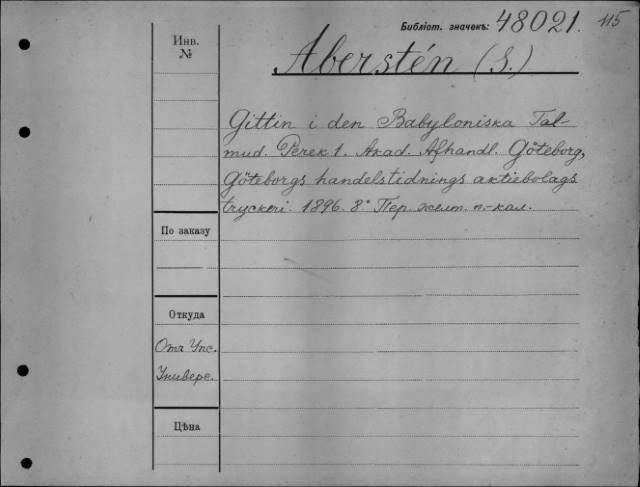 Библіот. значекъ: 48021. 115
Инв.
№
Aberstén (S.)
Gittin i den Babyloniska Tal-
mud. Perek 1. Akad. Afhandl. Göteborg,
Göteborgs handelstidnings aktiebolags
tryckeri. 1896. 8° Пер. желт. п.-кал.
По заказу
Откуда
Отъ Упс.
Универс.
Цѣна